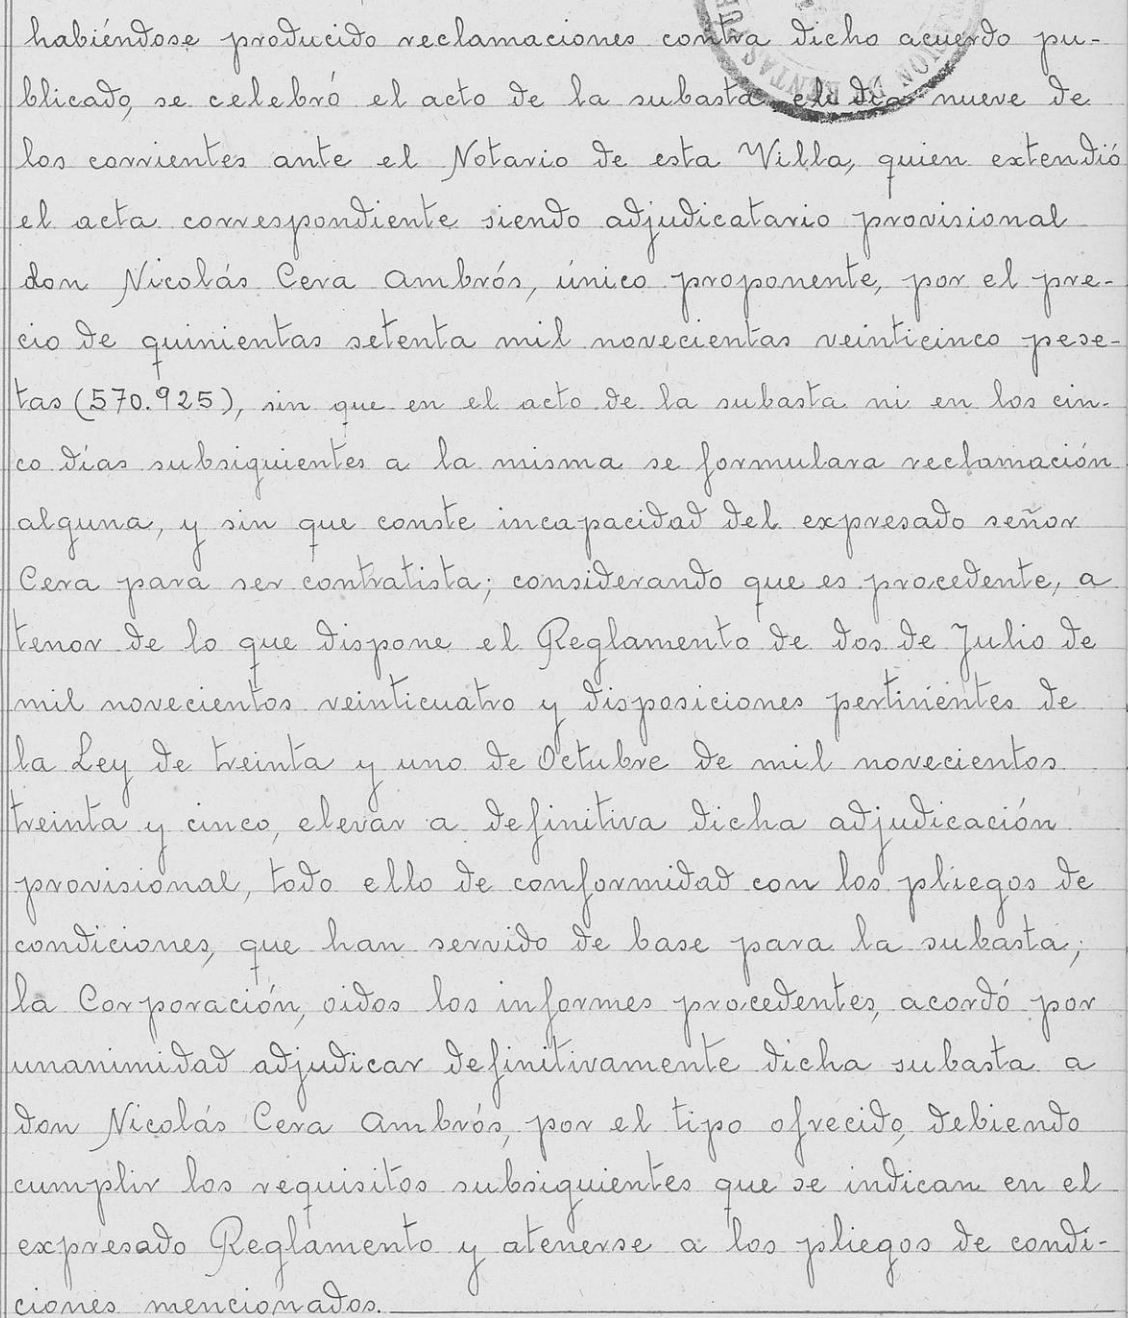 habiéndose producido reclamaciones contra dicho acuerdo pu-
blicado, se celebró el acto de la subasta el día nueve de
los corrientes ante el Notario de esta Villa, quien extendió
el acta correspondiente siendo adjudicatario provisional
don Nicolás Cera Ambrós, único proponente, por el pre-
cio de quinientas setenta mil novecientas veinticinco pese-
tas (570.925), sin que en el acto de la subasta ni en los cin-
co días subsiguientes a la misma se formulara reclamación
alguna, y sin que conste incapacidad del expresado señor
Cera para ser contratista; considerando que es procedente, a
tenor de lo que dispone el Reglamento de dos de Julio de
mil novecientos veinticuatro y disposiciones pertinentes de
la Ley de treinta y uno de Octubre de mil novecientos
treinta y cinco, elevar a definitiva dicha adjudicación
provisional, todo ello de conformidad con los pliegos de
condiciones, que han servido de base para la subasta;
la Corporación, oidos los informes procedentes, acordó por
unanimidad adjudicar definitivamente dicha subasta a
don Nicolás Cera Ambrós, por el tipo ofrecido, debiendo
cumplir los requisitos subsiguientes que se indican en el
expresado Reglamento y atenerse a los pliegos de condi-
ciones mencionados.